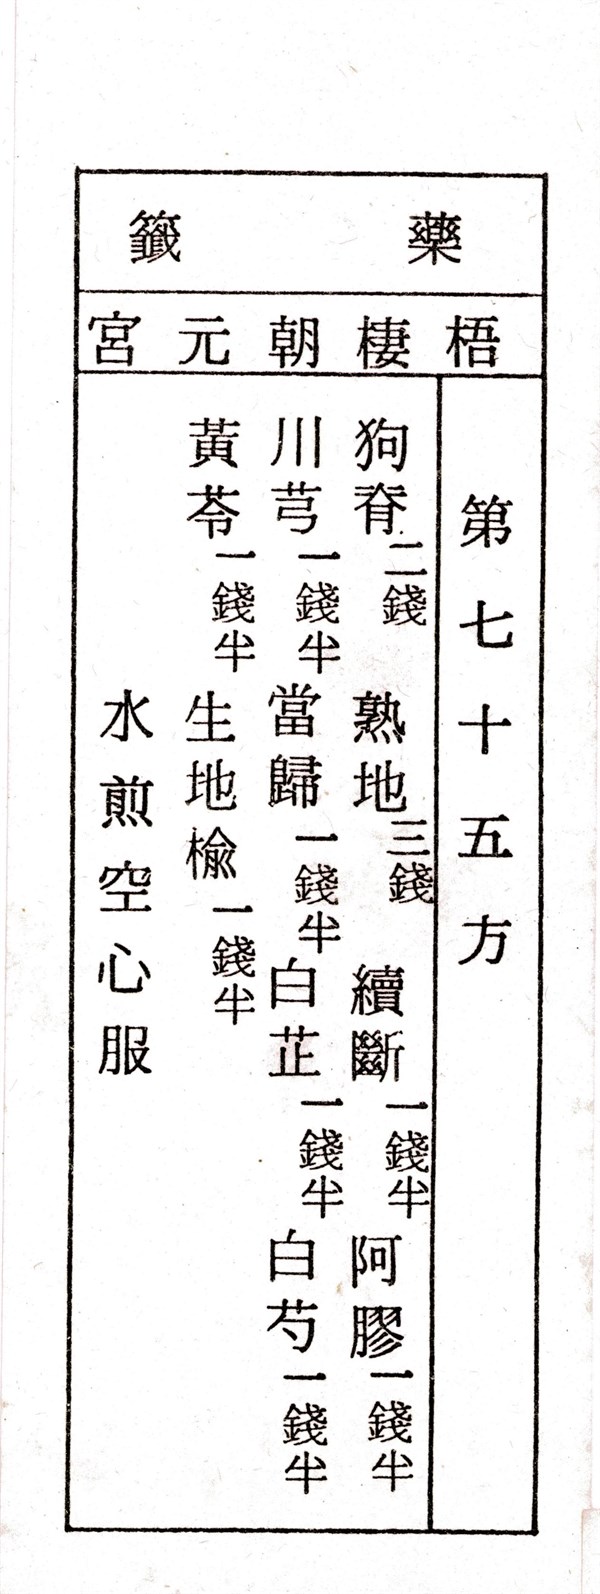 藥籤
梧棲朝元宮
第七十五方
狗脊二錢 熟地三錢 續斷一錢半 阿膠一錢半
川芎一錢半 當歸一錢半 白芷一錢半 白芍一錢半
黃芩一錢半 生地榆一錢半
水煎空心服